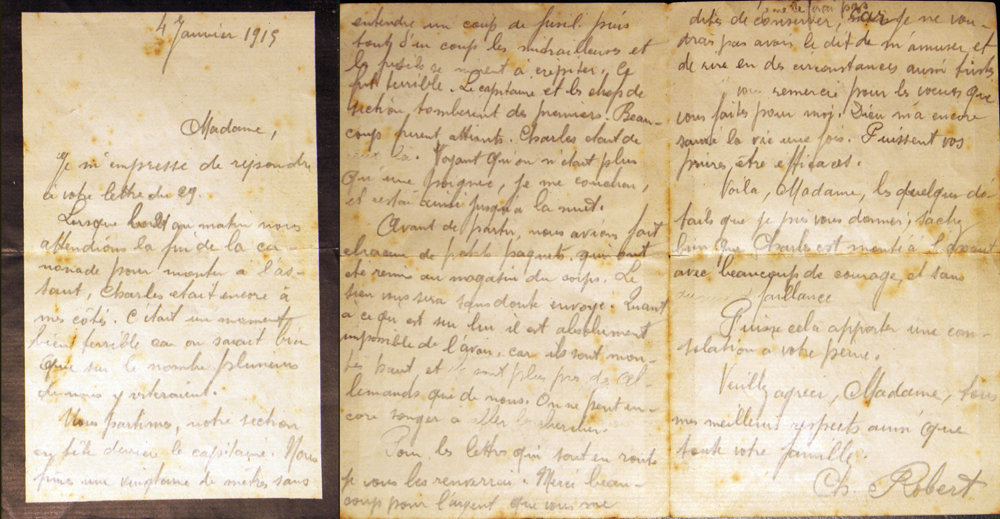 4 Janvier 1915
Madame,
Je m'empresse de répondre
à votre lettre du 29.
Lorsque le 21 au matin nous
attendions la fin de la ca-
nonade pour monter à l'as-
saut, Charles était encore à
mes côtés. C'était un moment
bien terrible car on savait bien
que sur le nombre plusieurs
y resteraient.
Nous partîmes, notre section
en tête derrière le capitaine. Nous
fîmes une vingtaine de mètres sans
entendre un coup de fusil puis
tout d'un coup les mitrailleuses et
les fusils se mirent à crépiter. Ce
fut terrible. Le capitaine et les chefs de
section tombèrent des premiers. Beau-
coup furent atteints. Charles était de
ceux là. Voyant qu'on n'était plus
qu'une poignée, je me couchai,
et restai ainsi jusqu'à la nuit.
Avant de partir, nous avions fait
chacun de petits paquets, qui ont
été remis au magasin du corps. Le
sien vous sera sans doute envoyé. Quant
à ce qui est sur lui il est absolument
impossible de l'avoir, car ils sont mon-
tés haut et ils sont plus près des Al-
lemands que de nous. On ne peut en-
core songer à aller le chercher.
Pour les lettres qui sont en route
je vous les renverrai. Merci beau-
coup pour l'argent que vous me
dites de conserver, je ne le ferai pas car je ne vou-
drais pas avoir le dit de m'amuser et
de rire en des circonstances aussi tristes
vous remercie pour les voeux que
vous faites pour moi. Dieu m'a encore
sauvé la vie une fois. Puissent vos
prières être efficaces.
Voilà, Madame, les quelques dé-
tails que je puis vous donner; sachez
bien que Charles est monté à l'assaut
avec beaucoup de courage, et sans
faillance
Puisse cela apporter une con-
solation à votre peine.
Veuillez agréer, Madame, tous
mes meilleurs respects ainsi que
toute votre famille.
Ch. Robert